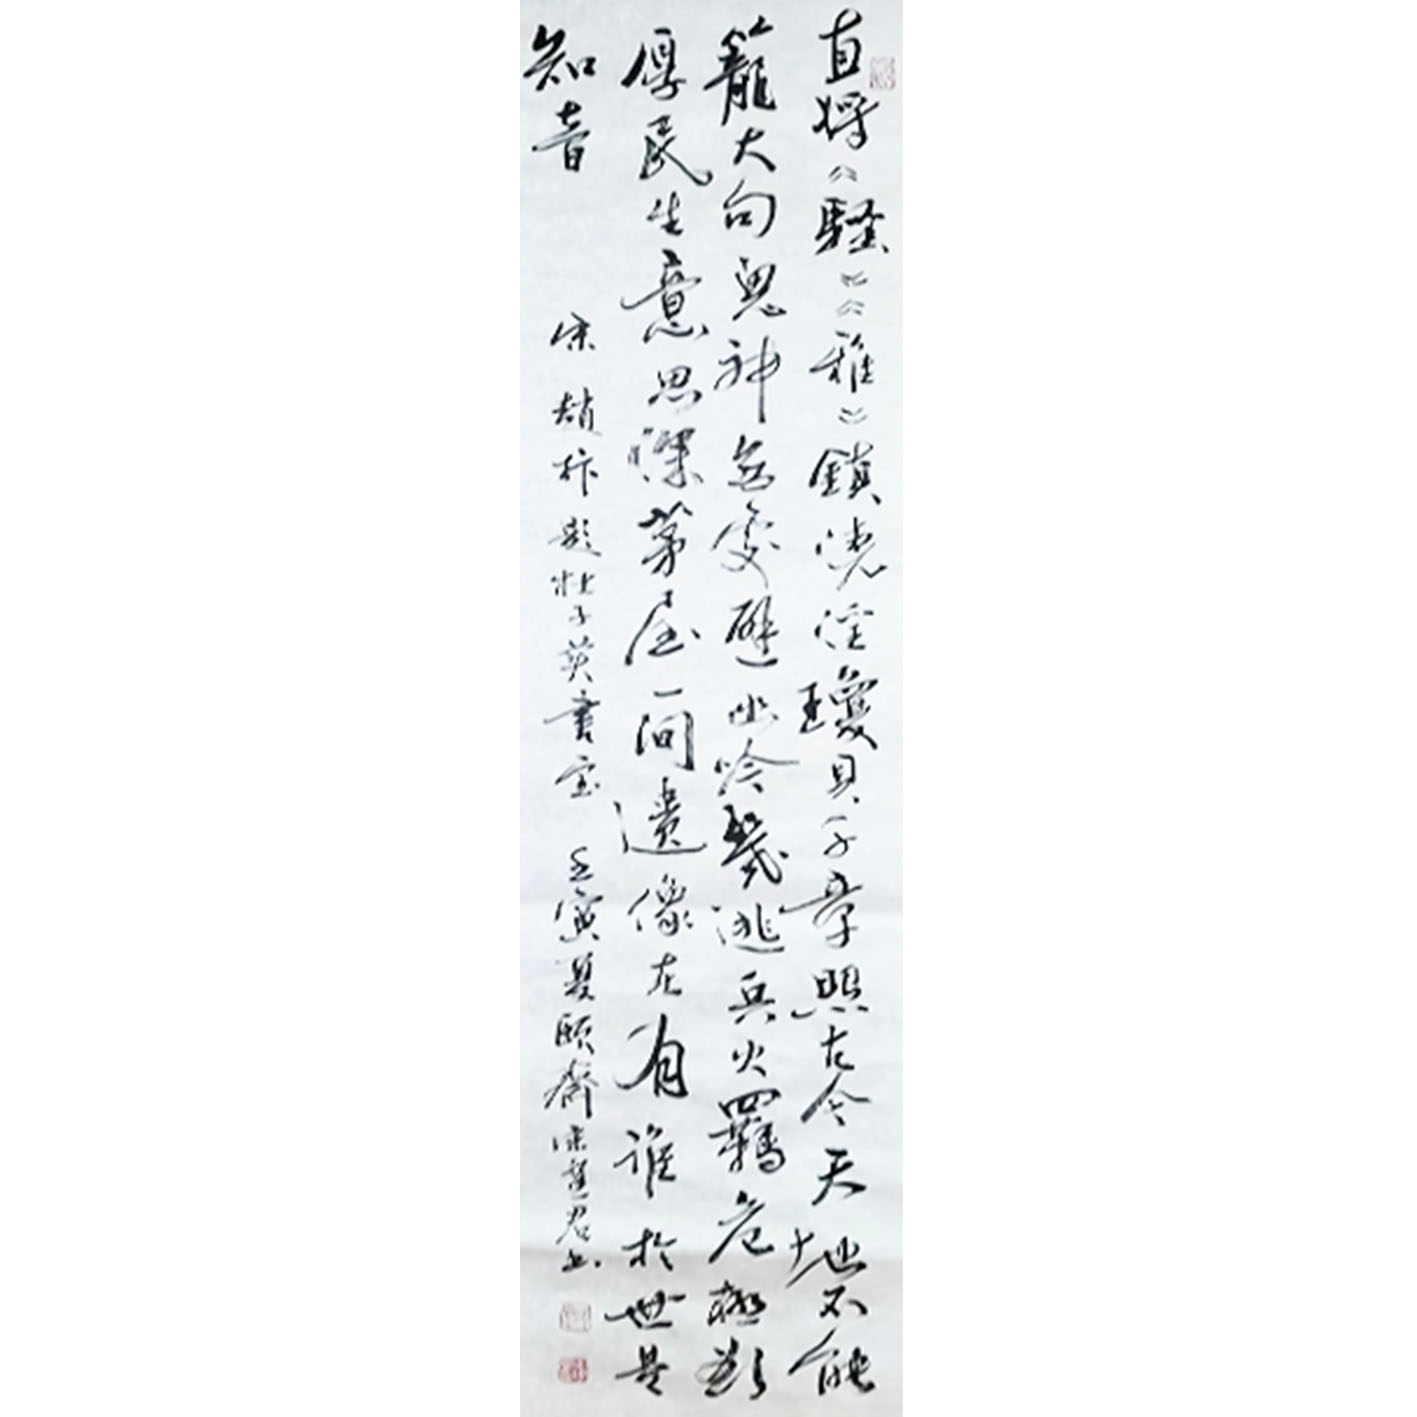 直将《騷》《雅》鎮澆淫瓊貝千章照古今天地不能
籠大句鬼神無處避幽吟幾逃兵火羈危極欲
厚民生意思深茅屋一間遺像在有誰於世是
知音
宋趙抃題杜子美書室 壬寅夏頤齋